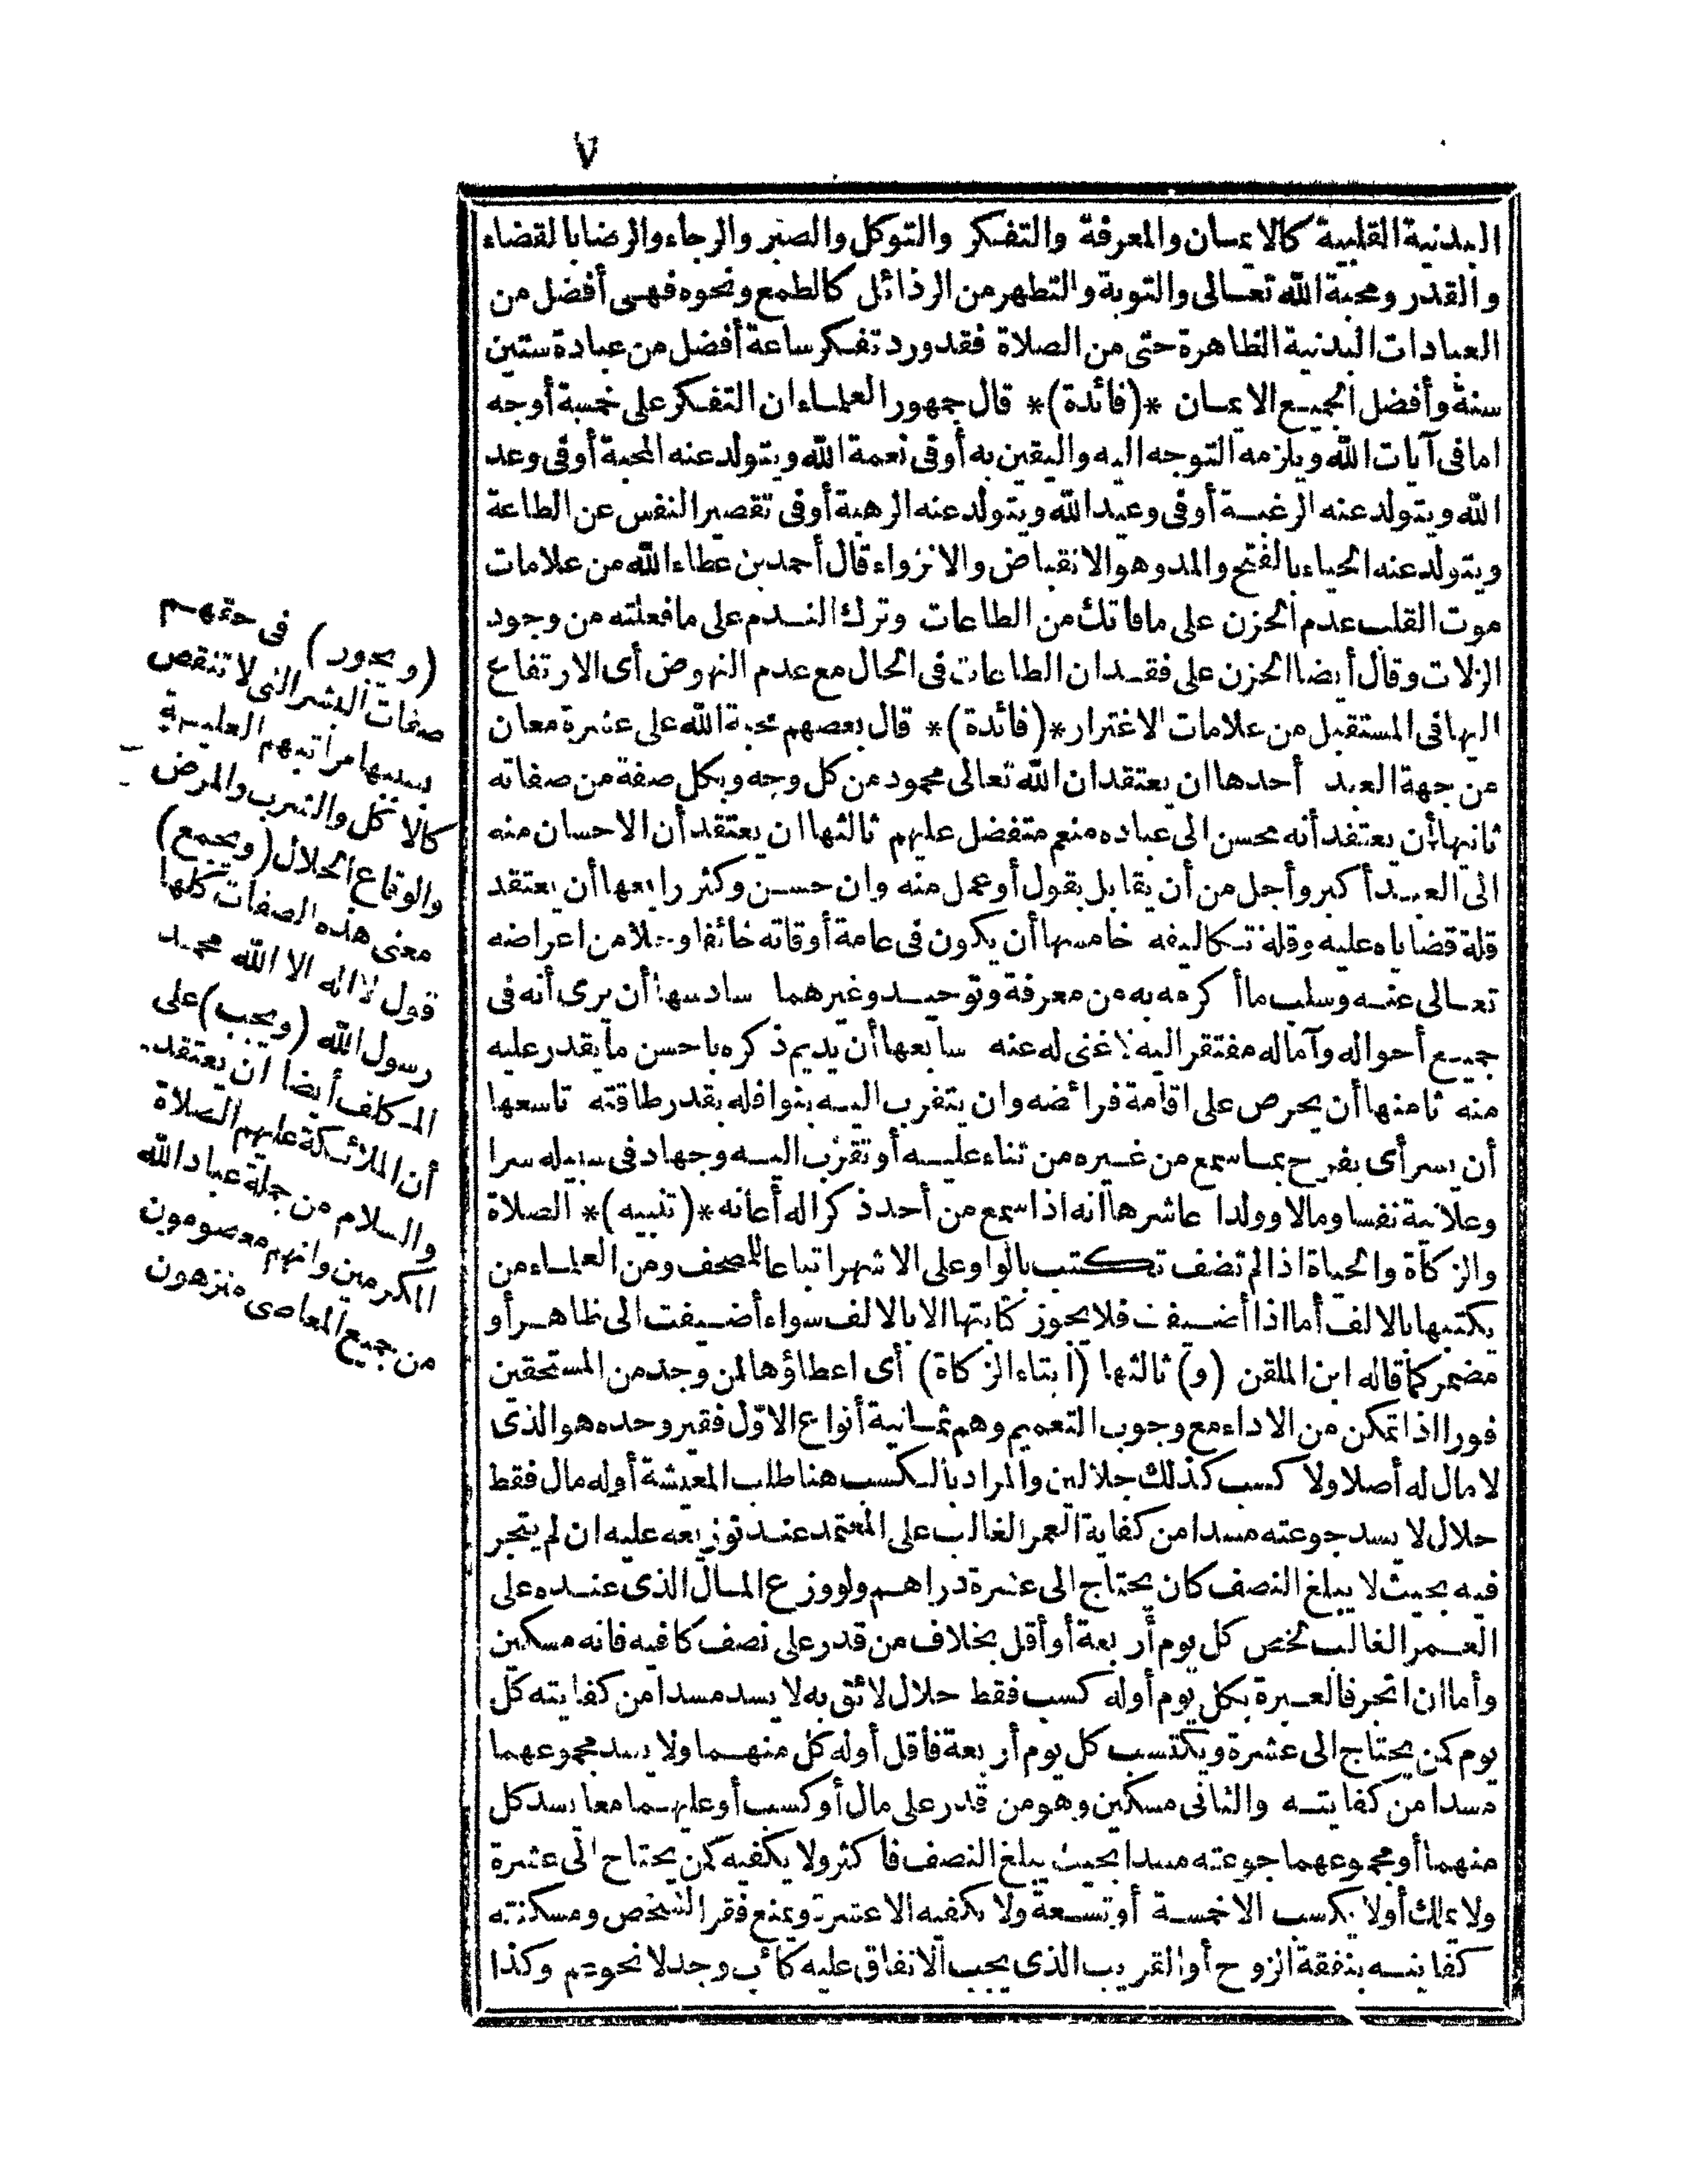 ٧
البدنية القلبية كالايمان والمعرفة والتفكر والتوكل والصبر والرجاء والرضا بالقضاء
والقدر ومحبة الله تعالى والتوبة والتطهر من الرذائل كالطمع ونحوه فهى أفضل من
العبادات البدنية الظاهرة حتى من الصلاة فقد ورد تفكر ساعة أفضل من عبادة ستين
سنة وأفضل الجميع الايمان *(فائدة)* قال جمهور العلماء ان التفكر على خمسة أوجه
اما فى آيات الله ويلزمه التوجه اليه واليقين به أو فى نعمة الله ويتولد عنه المحبة أو فى وعد
الله ويتولد عنه الرغبة أو فى وعيد الله ويتولد عنه الرهبة أو فى تقصير النفس عن الطاعة
ويتولد عنه الحياء بالفتح والمد وهو الانقباض والانزواء قال أحمد بن عطاء الله من علامات
موت القلب عدم الحزن على ما فاتك من الطاعات وترك الندم على ما فعلته من وجود
الزلات وقال أيضا الحزن على فقدان الطاعات فى الحال مع عدم النهوض أى الارتفاع
اليها فى المستقبل من علامات الاغترار *(فائدة)* قال بعضهم محبة الله على عشرة معان
من جهة العبد أحدها ان يعتقد ان الله تعالى محمود من كل وجه وبكل صفة من صفاته
ثانيها أن يعتقد أنه محسن الى عباده منعم متفضل عليهم ثالثها ان يعتقد أن الاحسان منه
الى العبد أكبر وأجل من أن يقابل بقول أو عمل منه وان حسن وكثر رابعها أن يعتقد
قلة قضاياه عليه وقلة تكاليفه خامسها أن يكون فى عامة أوقاته خائفا وجلا من اعراضه
تعالى عنه وسلب ما أكرمه به من معرفة وتوحيد وغيرهما سادسها أن يرى أنه فى
جميع أحواله وآماله مفتقر اليه لا غنى له عنه سابعها أن يديم ذكره باحسن ما يقدر عليه
منه ثامنها أن يحرص على اقامة فرائضه وان يتقرب اليه بنوافله بقدر طاقته تاسعها
أن يسر أى يفرح بما سمع من غيره من ثناء عليه أو تقرب اليه وجهاد فى سبيله سرا
وعلانية نفسا ومالا وولدا عاشرها انه اذا سمع من أحد ذكرا له أعانه *(تنبيه)* الصلاة
والزكاة والحياة اذا لم تضف تكتب بالواو على الاشهر اتباعا للمصحف ومن العلماء من
يكتبها بالالف أما اذا أضيفت فلا يجوز كتابتها الا بالالف سواء أضيفت الى ظاهر أو
مضمر كما قاله ابن الملقن (و) ثالثها (ايتاء الزكاة) أى اعطاؤها لمن وجد من المستحقين
فورا اذا تمكن من الاداء مع وجوب التعميم وهم ثمانية أنواع الاوّل فقير وحده هو الذى
لا مال له أصلا ولا كسب كذلك حلالين والمراد بالكسب هنا طلب المعيشة أو له مال فقط
حلال لا يسد جوعته مسدا من كفاية العمر الغالب على المعتمد عند توزيعه عليه ان لم يتجر
فيه بحيث لا يبلغ النصف كان يحتاج الى عشرة دراهم ولو وزع المال الذى عنده على
العمر الغالب لخص كل يوم أربعة أو أقل بخلاف من قدر على نصف كافيه فانه مسكين
وأما ان اتجر فالعبرة بكل يوم أو له كسب فقط حلال لائق به لا يسد مسدا من كفايته كل
يوم كمن يحتاج الى عشرة ويكتسب كل يوم أربعة فأقل أو له كل منهما ولا يسد مجموعهما
مسدا من كفايته والثانى مسكين وهو من قدر على مال أو كسب أو عليهما معا يسد كل
منهما أو مجموعهما جوعته مسدا بحيث يبلغ النصف فأكثر ولا يكفيه كمن يحتاج الى عشرة
ولا يملك أو لا يكسب الا خمسة أو تسعة ولا يكفيه الا عشرة ويمنع فقر الشخص ومسكنته
كفايته بنفقة الزوج أو القريب الذى يجب الانفاق عليه كأب وجد لا نحو عم وكذا
(ويجوز) فى حقهم
صفات البشر التى لا تنقص
بسببها مراتبهم العلية
كالاكل والشرب والمرض
والوقاع الحلال (ويجمع)
معنى هذه الصفات كلها
قول لا اله الا الله محمد
رسول الله (ويجب) على
المكلف أيضا ان يعتقد
أن الملائكة عليهم الصلاة
والسلام من جملة عباد الله
المكرمين وانهم معصومون
من جميع المعاصى منزهون